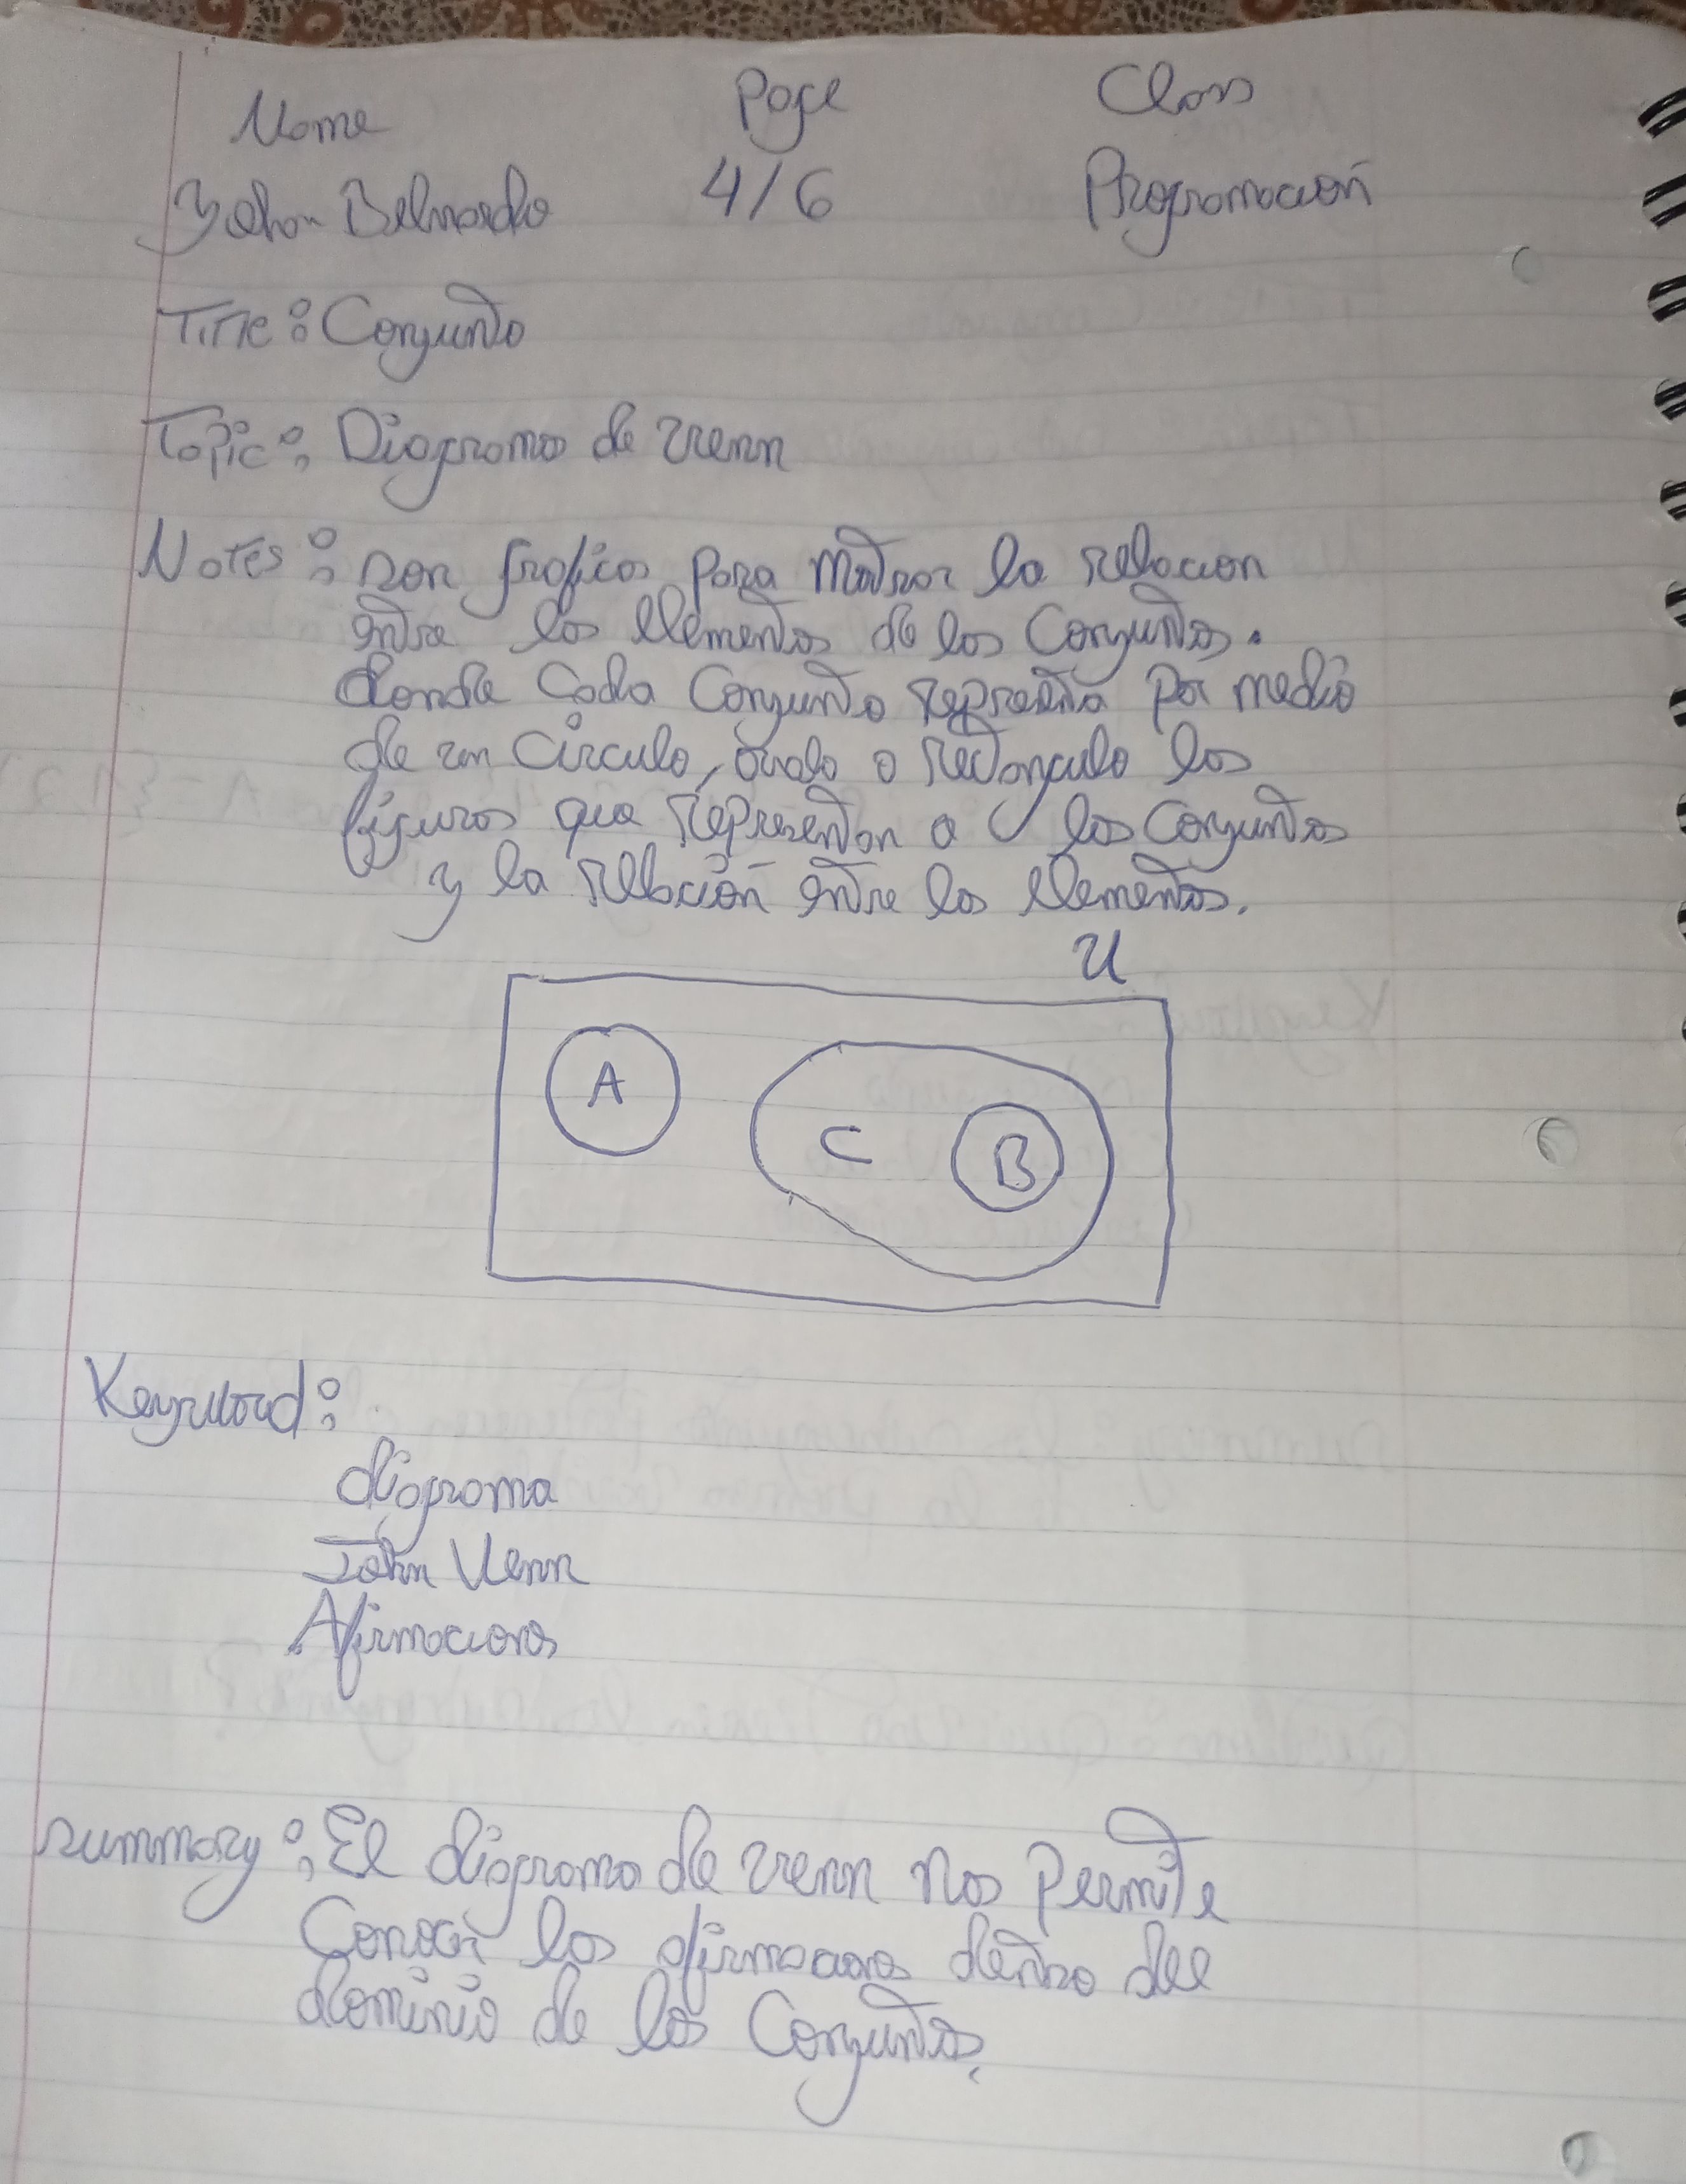 Name Page Class
Belnardo 4/6 Programación
Title: Conjunto
Topic: Diagrama de venn
Notes: son graficos para mostrar la relacion
entre los elementos de los Conjuntos.
donde cada Conjunto representa por medio
de un Círculo, óvalo o rectangulo los
figuras que representan a los conjuntos
y la relación entre los elementos.
U
A
C B
Keyword:
diagrama
John Venn
Afirmaciones
summary: El diagrama de venn nos permite
Conocer las afirmaciones dentro del
dominio de los Conjuntos.